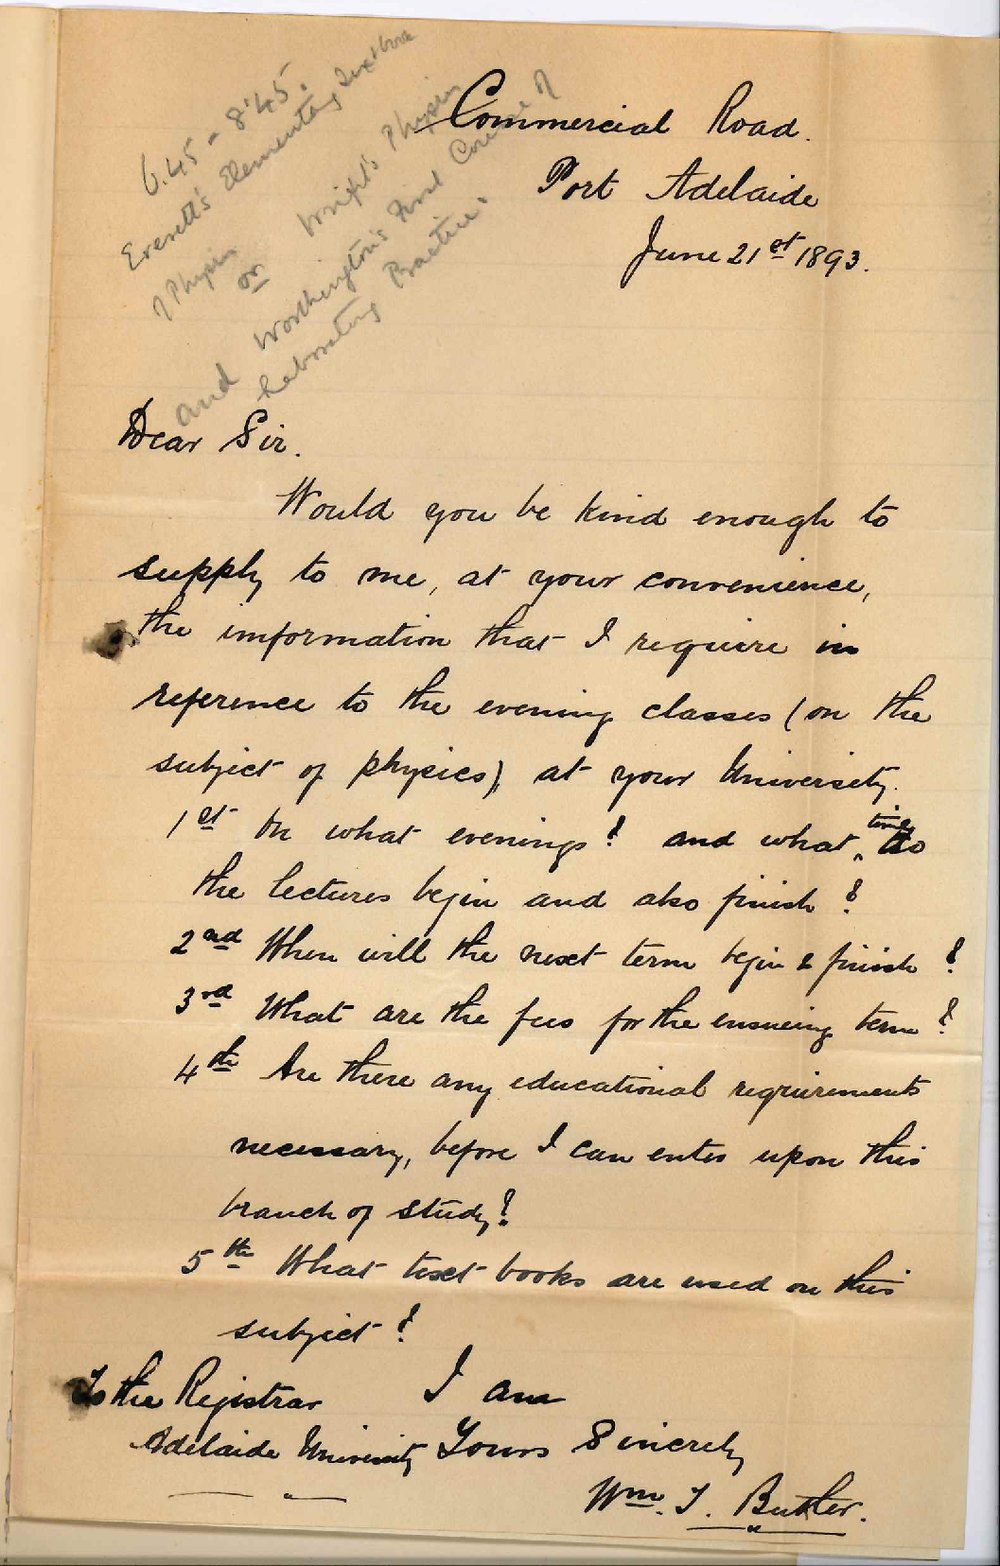 6.45 - 8.45.
Everett's Elementary Textbook
of Physics
or Wright's Physics
and Worthington's First Course of
Laboratory Practice.
Commercial Road.
Port Adelaide
June 21st 1893.
Dear Sir.
Would you be kind enough to
supply to me, at your convenience,
the information that I require in
reference to the evening classes (on the
subject of physics), at your University.
1st On what evenings? and what time do
the lectures begin and also finish?
2nd When will the next term begin & finish?
3rd What are the fees for the ensueing term?
4th Are there any educational requirements
necessary, before I can enter upon this
branch of study?
5th What text books are used on this
subject?
To the Registrar I am
Adelaide University Yours Sincerely
Wm. T. Butler.